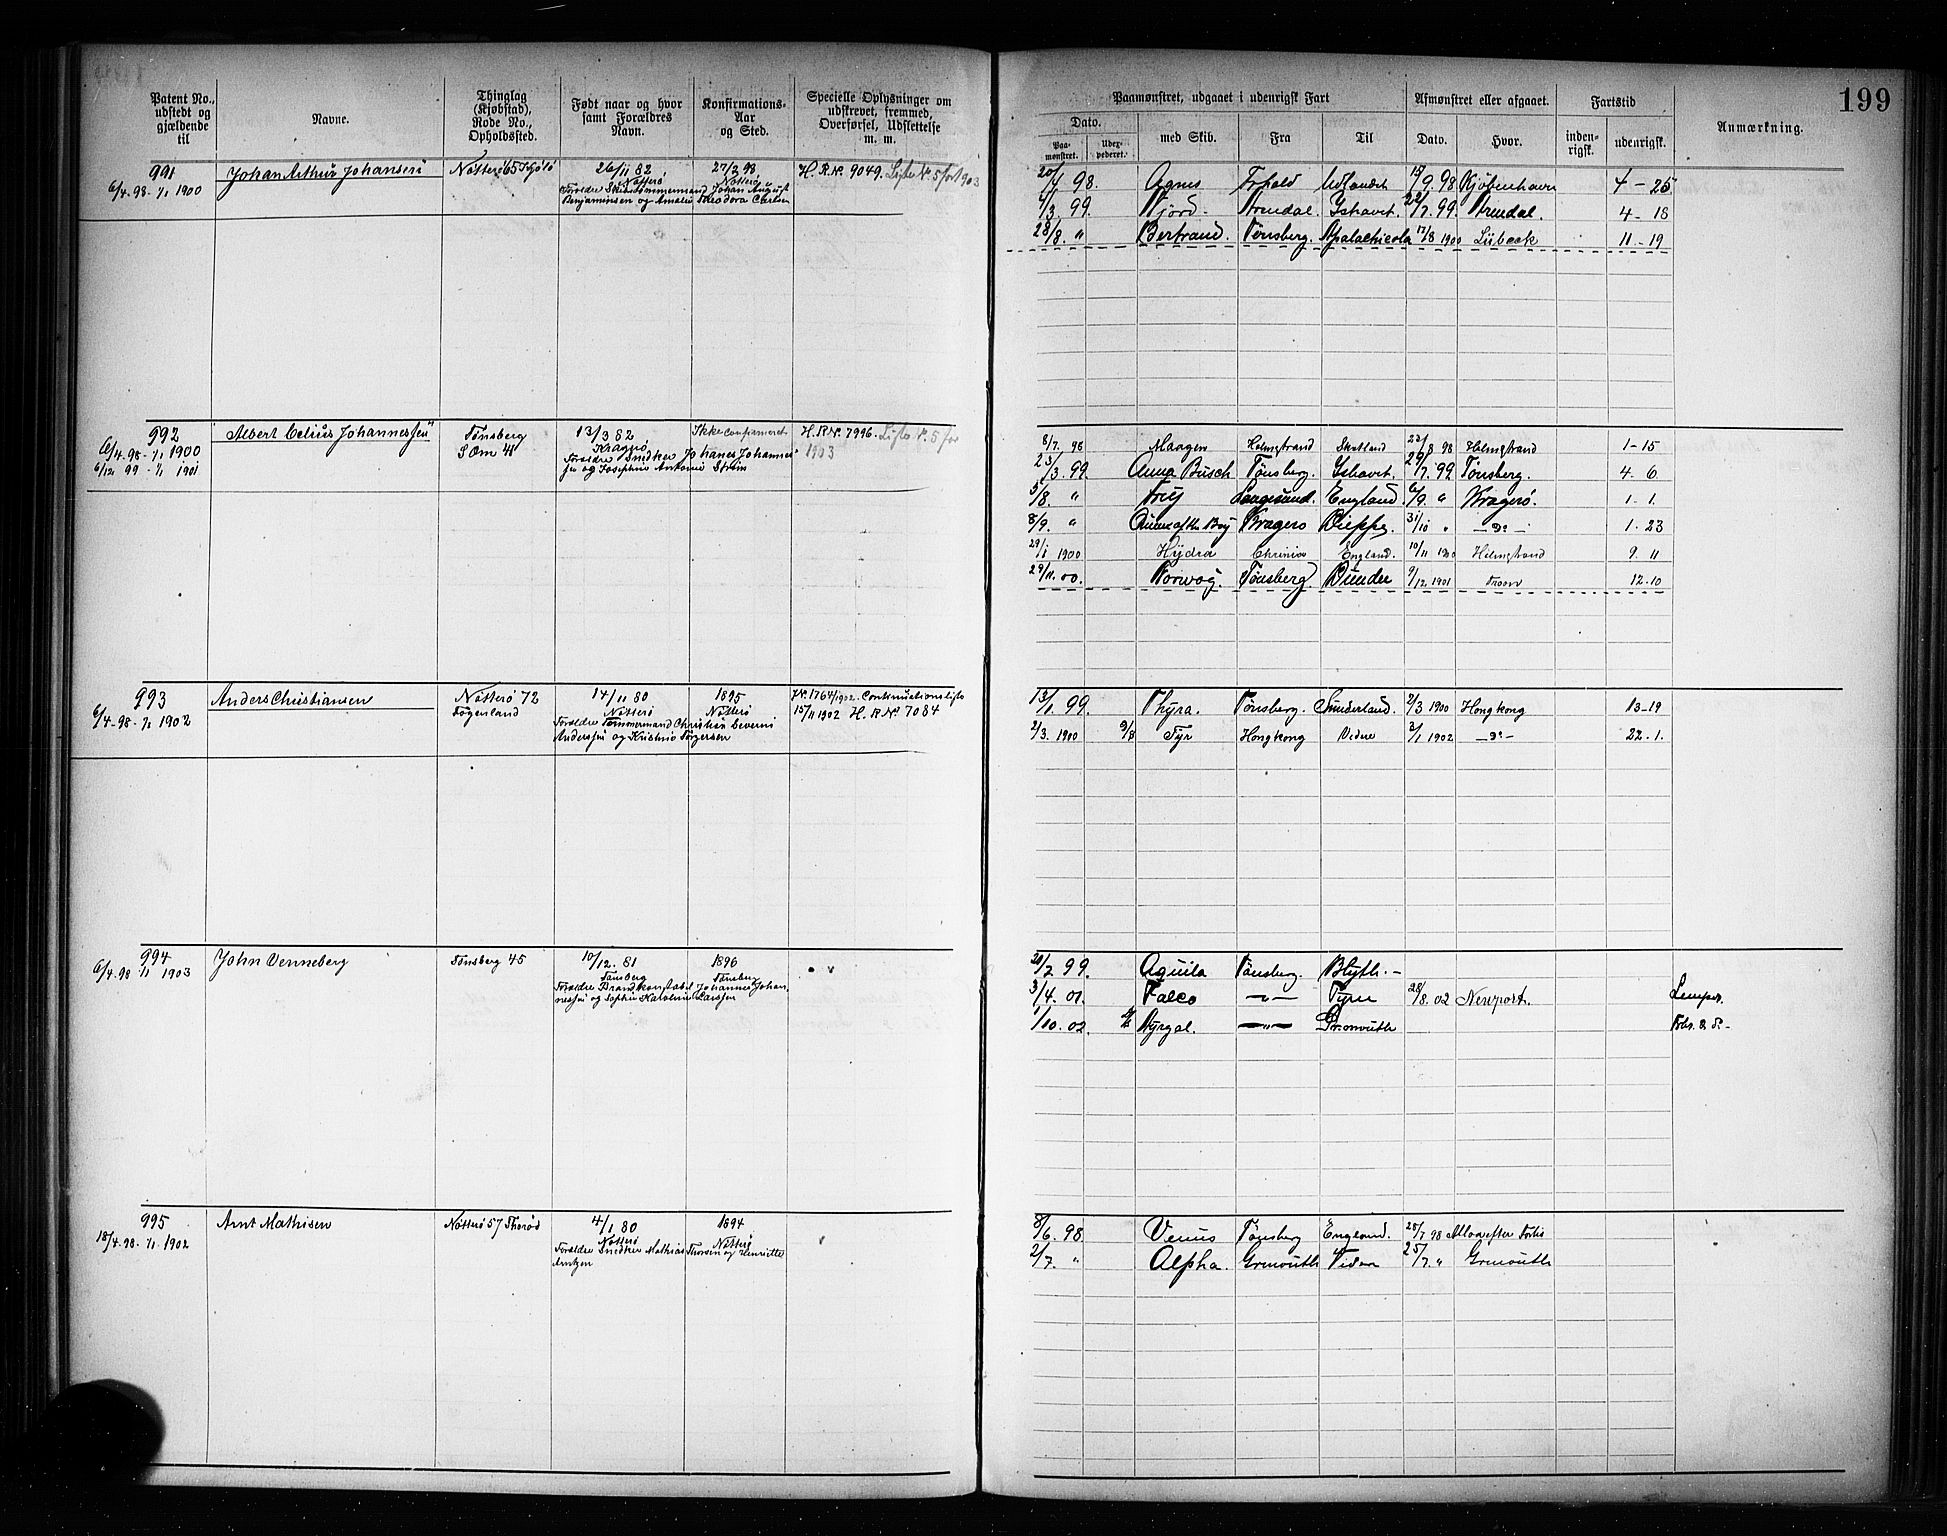 199
Patent No., udstedt og gjældende til
Navne.
Thinglag (Kjøbstad), Rode No., Opholdssted.
Født naar og hvor samt Forældres Navn.
Konfirmations- Aar og Sted.
Specielle Oplysninger om udskrevet, fremmed, Overførsel, Udslettelse m. m.
Paamønstret, udgaaet i udenrigsk Fart
Afmønstret eller afgaaet.
Fartstid
Anmærkning.
Dato.
med Skib.
Fra
Til
Dato.
Hvor.
inden- rigsk.
udenrigsk.
Paa- mønstret.
Udex- pederet.
991
6/4 98 - 1/1 1900
Johan Arthur Johansen
Nøtterø 65
26/11 82 Nøtterø
27/3 98 Nøtterø
Forældre Skibstømmermand Johan August
Benjaminsen og Amalie Theodora
H. R No. 9049. Liste No. 5 for 1903
20/4 98. Agnes Udlandet 15/9 98 Kjøbenhavn 4 - 25
4/3. 99. Njord. Arendal. Ishavet. 22/7. 99. Arendal. 4 - 18
28/8. " Bertrand. Tønsberg. Apalachicola 17/8 1900 Lübeck 11 - 19
992
6/4 98 - 1/1 1900
6/12 99 - 1/1 1901
Albert Celius Johannessen
Tønsberg
S Øm 41
13/3 82
Kragerø
Ikke confirmeret
Forældre Snedker Johanes Johannes-
sen og Josephine Antonie
H. R No. 7996. Liste No. 5 for 1903
8/7. 98 Maagen Holmestrand Skotland 22/8 98 Holmestrand 1 - 15
23/3. 99. Anna Busch Tønsberg. Ishavet. 29/7. 99 Tønsberg. 4. 6
5/8. " Frey Langesund. England. 6/9. " Kragerø. 1. 1.
8/9. " Kragerø Dieppe. 31/10 " - Do - 1. 23
29/1 1900 Hydra England. 10/11 1900 Holmestrand 9. 11
29/11. 00. Norvog. Tønsberg. 9/12. 1901 12. 10
993
6/4 98 - 1/1 1902
Anders Christiansen
Nøtterø 72
14/11 80
Nøtterø
1895
Nøtterø
Forældre Tømmermand Christian Severin
Anderssen og Kristine Torgersen
JNo. 1764/1902. Continuationsliste
15/11 1902 H. R No. 7084
13/1. 99. Thyra. Tønsberg. Sunderland. 2/3 1900 Hongkong 13 - 19
2/3. 1900 9/8 Tyr Hongkong Videre 3/1 1902 - Do - 22. 1.
994
6/4. 98 1/1 1903
John Venneberg
Tønsberg 45
10/12. 81
Tønsberg
1896
Tønsberg
Forældre Brandkonstabel Johannes Johan-
nessen og Sophie Karoline Larssen
20/2 99. Aquila Tønsberg. Blyth. -
3/4. 01. Falco - " - Tyne 28/8. 02 Newport.
1/10. 02. - " -
995
18/4. 98. 1/1. 1902
Arnt Mathisen
Nøtterø 57
4/1 80
Nøtterø
1894
Nøtterø
Forældre Snedker Mathias Thorsen og Henriette
Arntzen
8/6. 98 Venus Tønsberg England. 25/7 98
2/7. " Alpha. 25/7. "